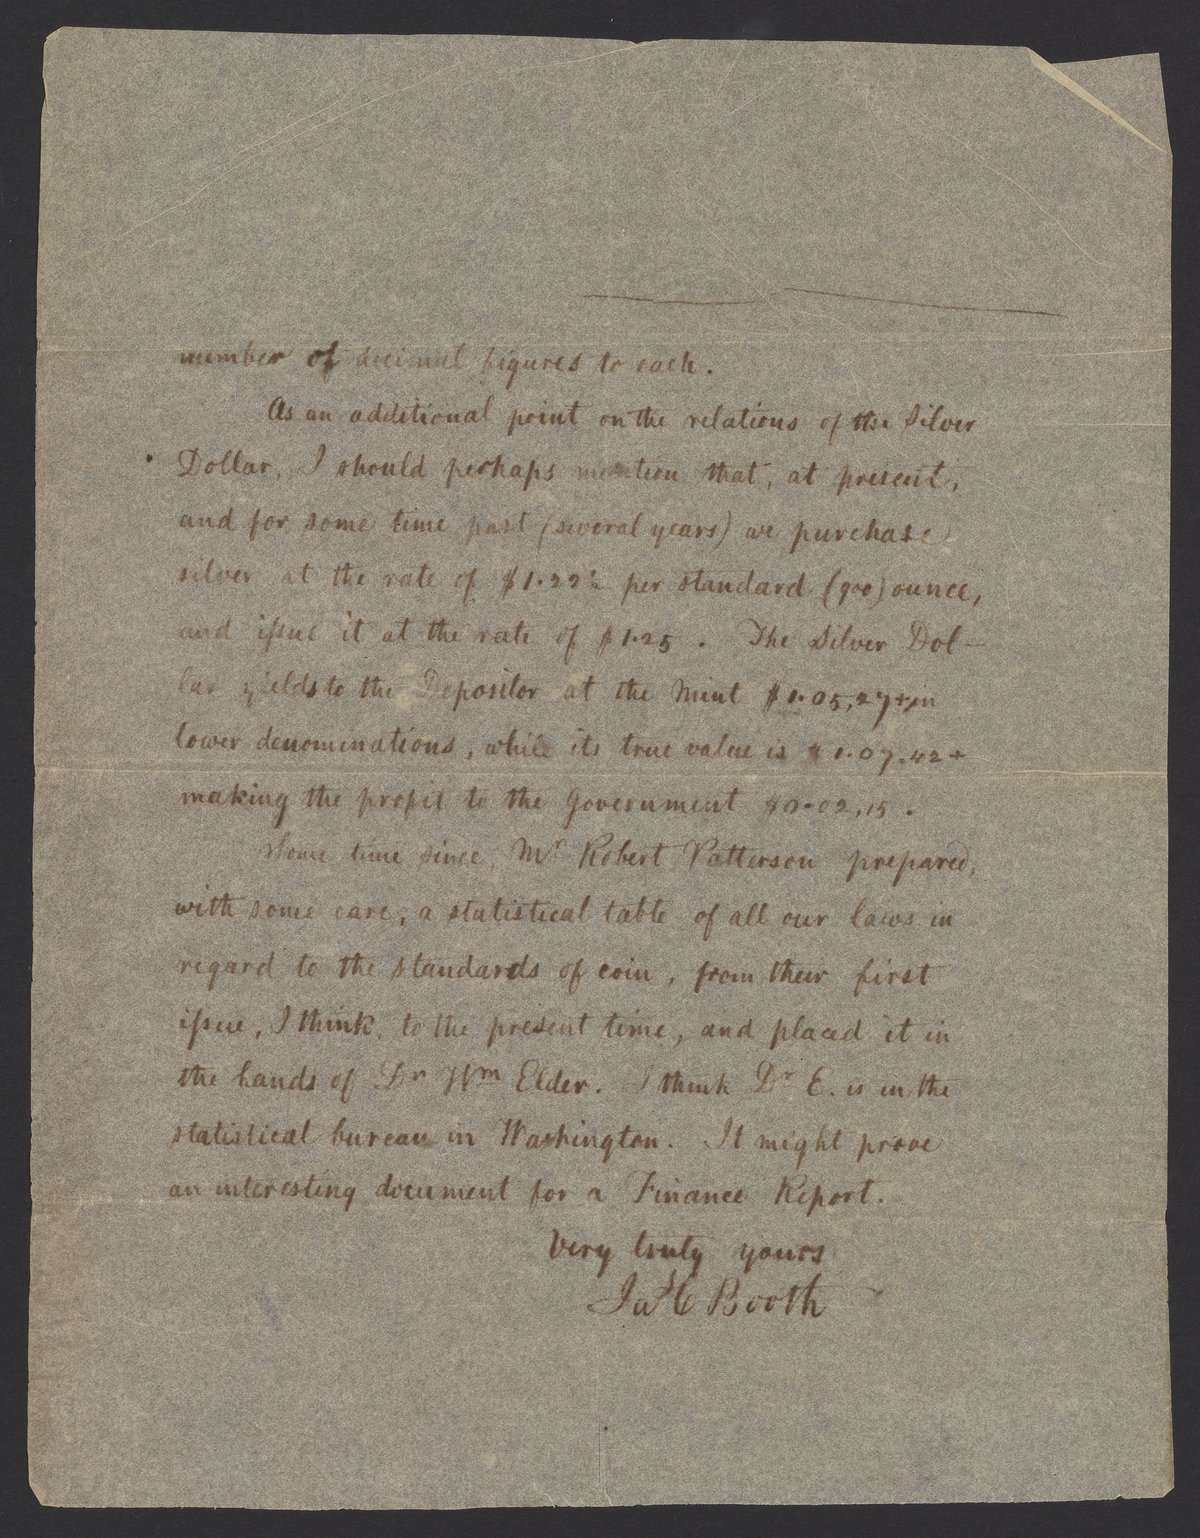 number of decimal figures to each.
As an additional point on the relations of the Silver
Dollar, I should perhaps mention that, at present,
and for some time past (several years) we purchase
silver at the rate of $1.22½ per standard (900) ounce,
and issue it at the rate of $1.25. The Silver Dol-
lar yields to the Depositor at the Mint $1.05,27+ in
lower denominations, while its true value is $1.07.42+
making the profit to the Government $0.02,15.
Some time since, Mr Robert Patterson prepared,
with some care, a statistical table of all our laws in
regard to the standards of coin, from their first
issue, I think, to the present time, and placed it in
the hands of Dr Wm Elder. I think Dr E. is in the
statistical bureau in Washington. It might prove
an interesting document for a Finance Report.
Very truly yours
Jas C Booth